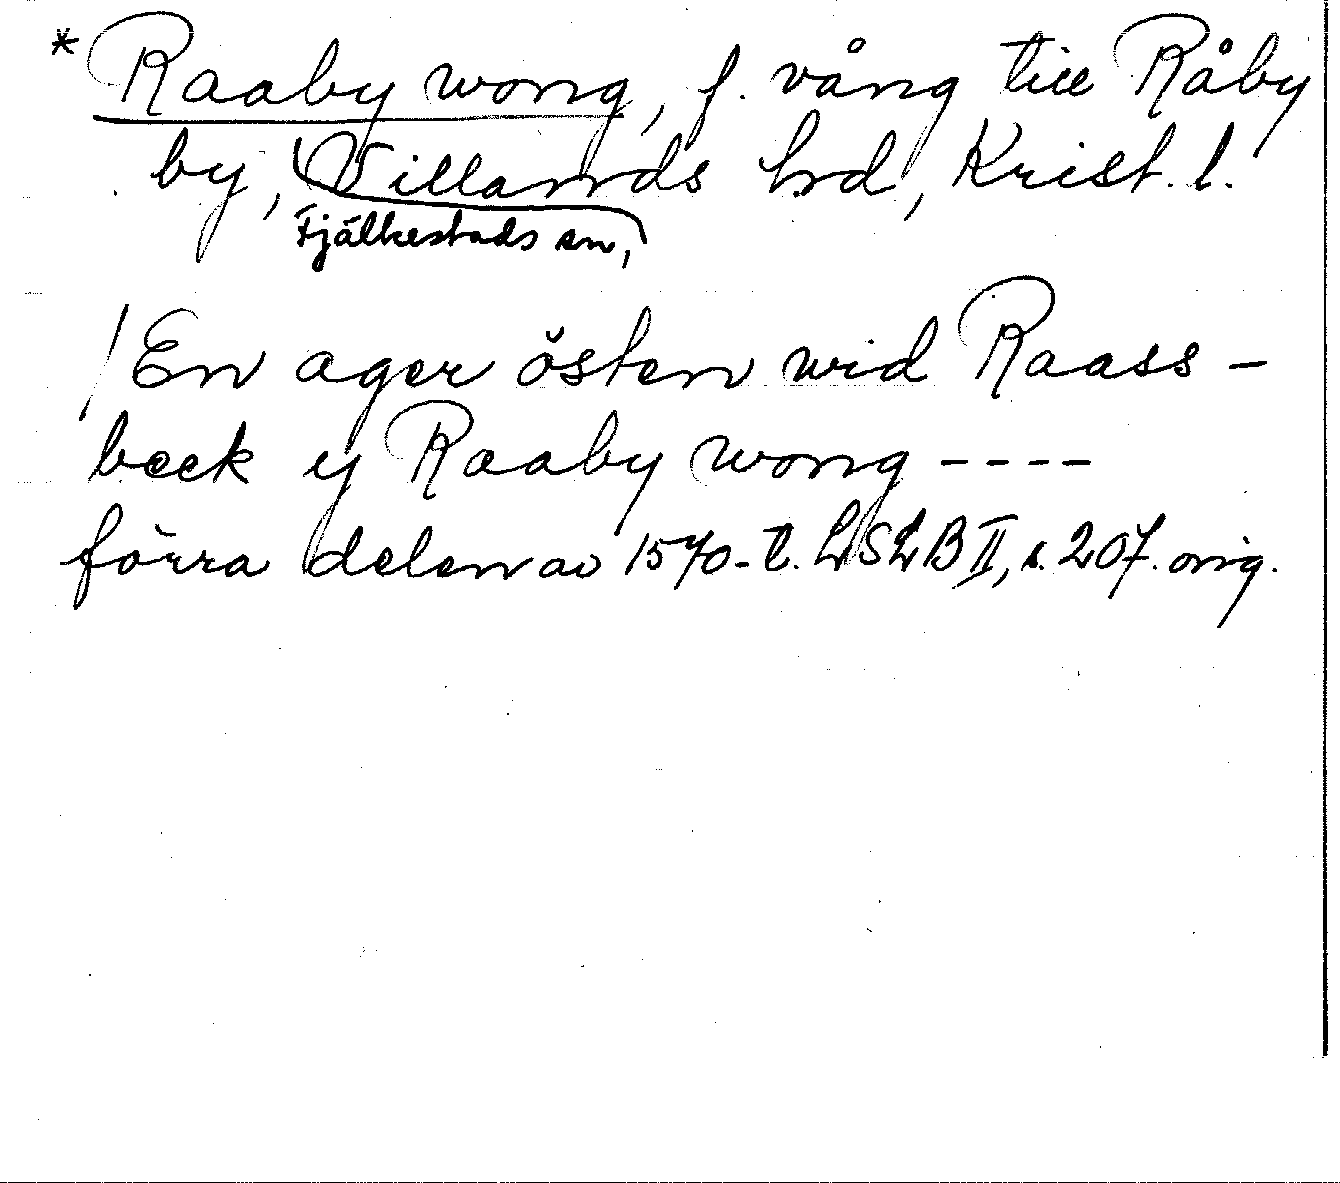 * Raaby wong, f. vång till Råby
by, Villands hrd, Krist. l.
Fjälkestads sn,
/ En ager östen wid Raass-
beck y Raaby wong ----
förra delen av 1570-t. LSLB II, s. 207. orig.